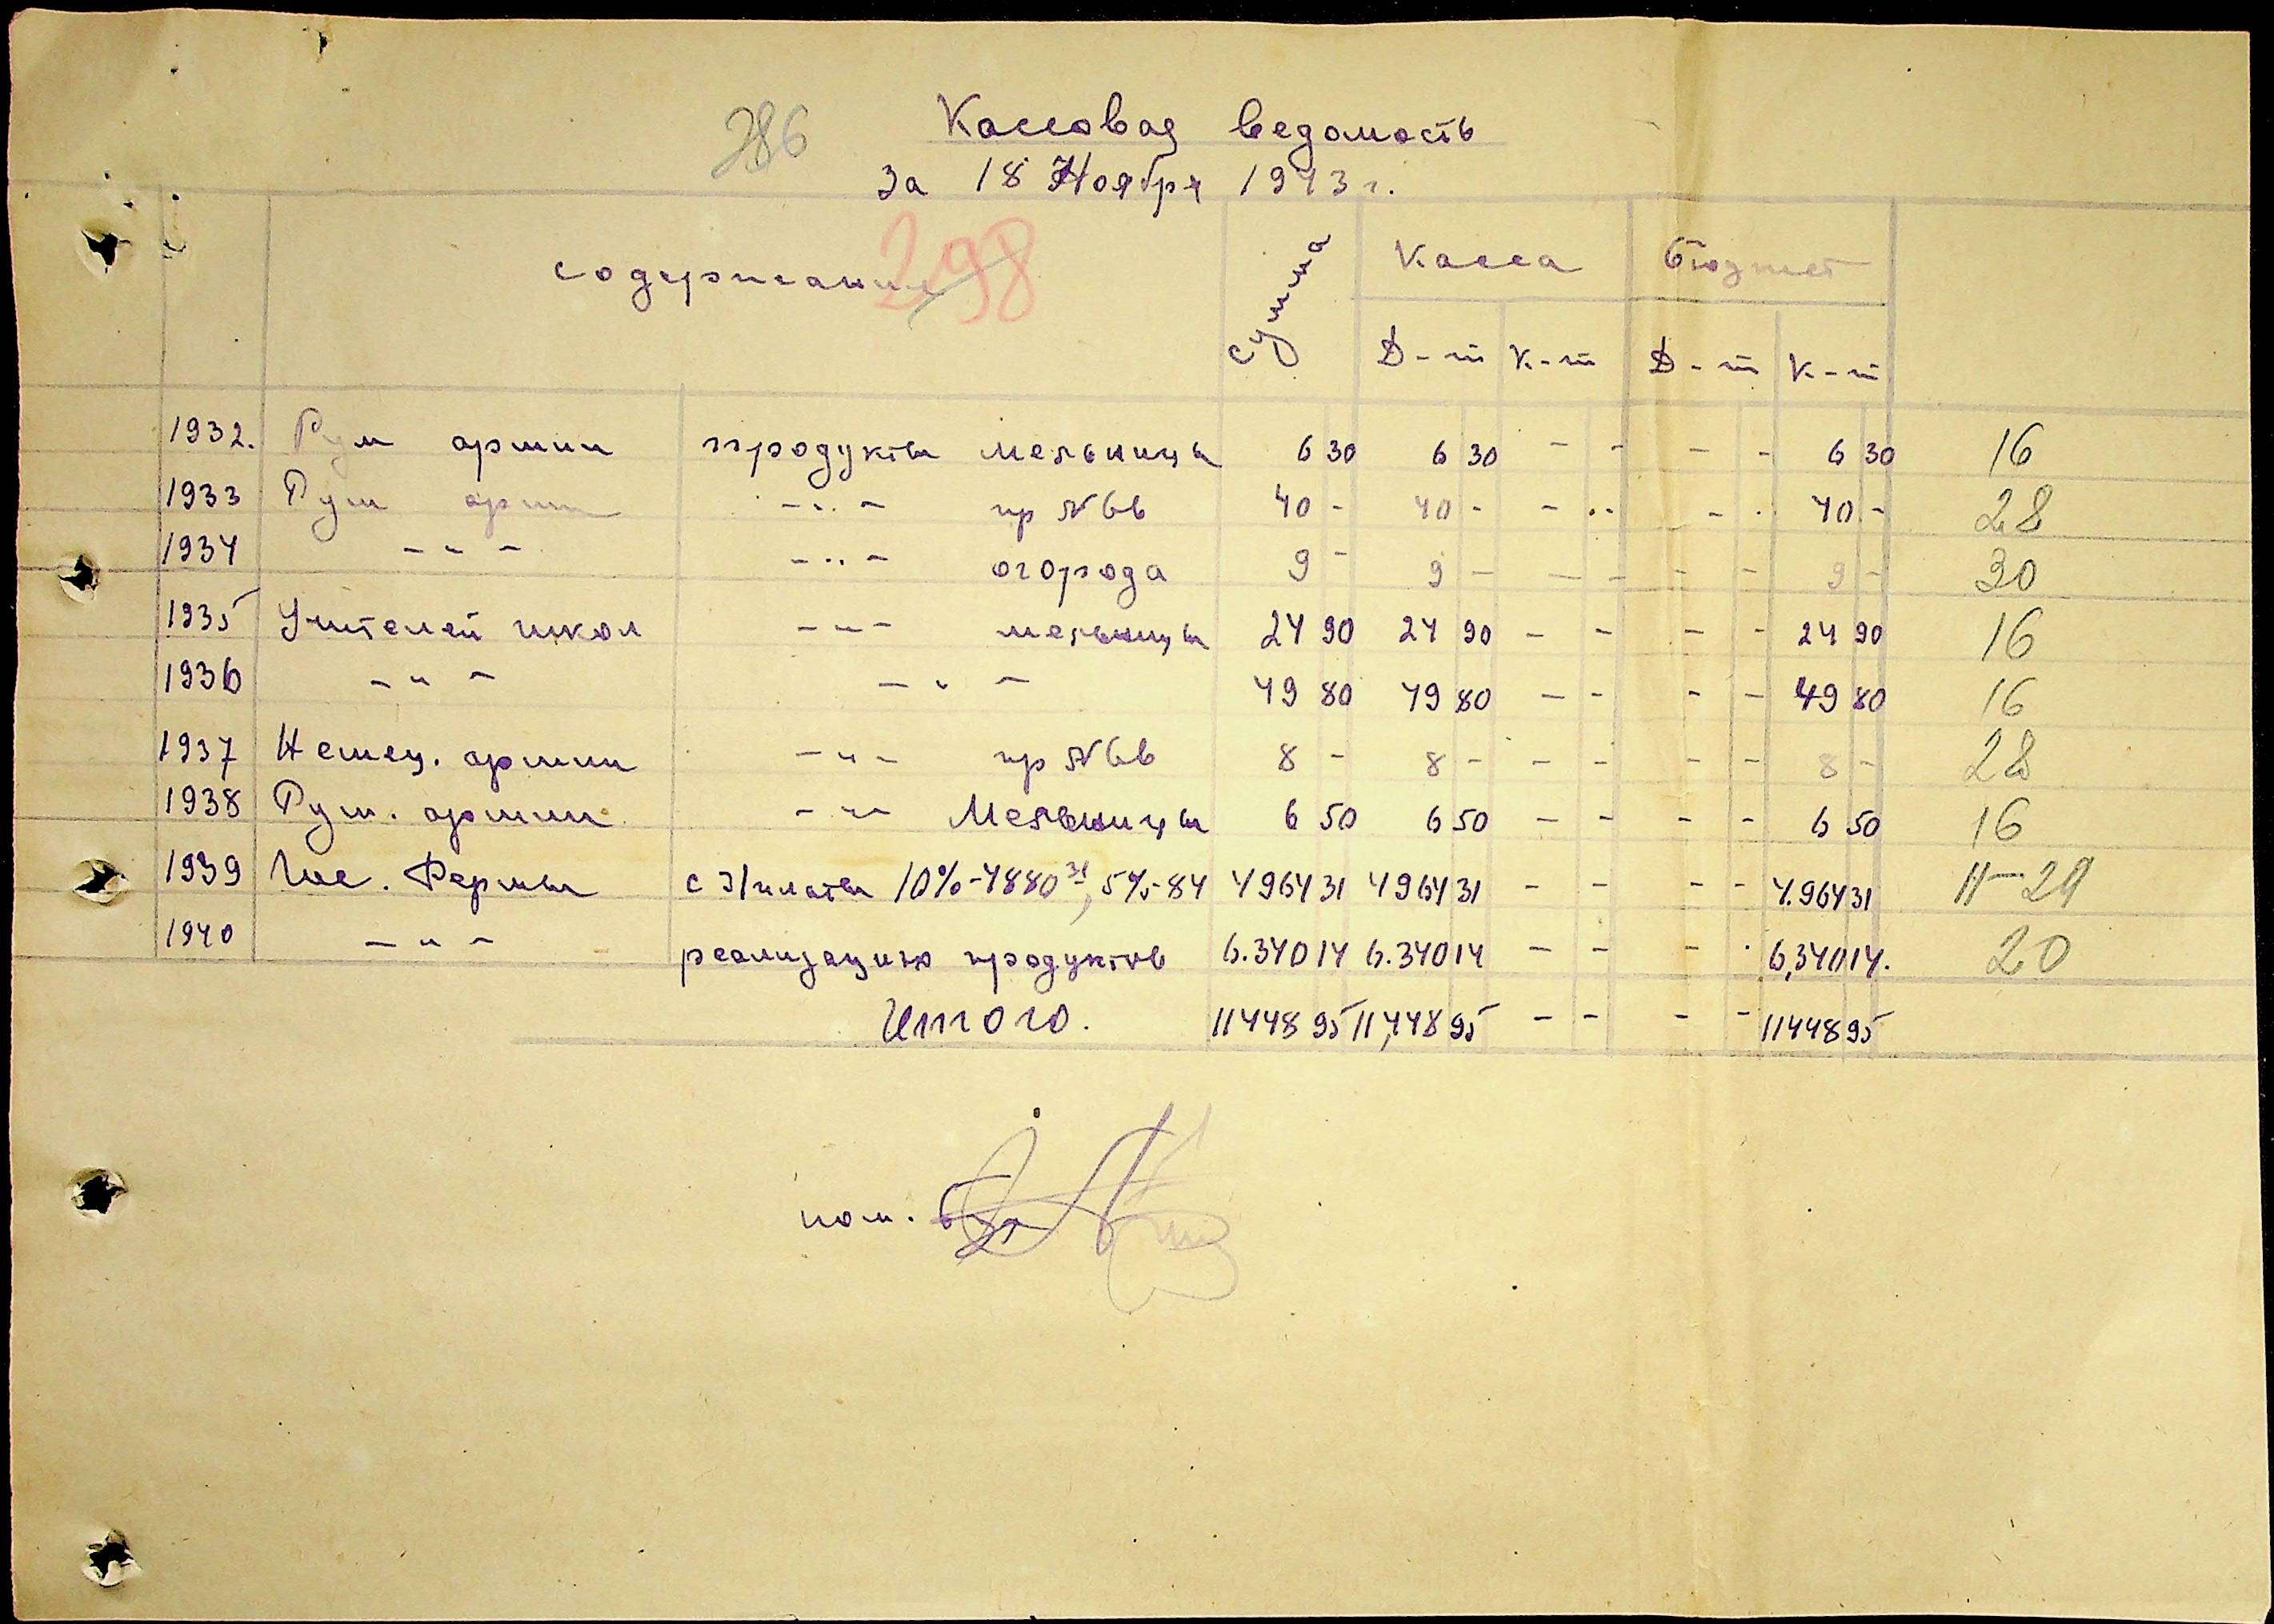 286
Кассовая ведомость
за 18 Ноября 1943 г.
298
содержание сумма Касса Бюджет
Д-т К-т Д-т К-т
1932. Рум армии продукты мельницы 6 30 6 30 - - - - 6 30 16
1933 Рум арми -"- пр №6в 40 - 40 - - - - - 40 - 28
1934 -"- -"- огорода 9 - 9 - - - - - 9 - 30
1935 Учителей школ -"- мельницы 24 90 24 90 - - - - 24 90 16
1936 -"- -"- 49 80 49 80 - - - - 49 80 16
1937 Немец. армии -"- пр №6в 8 - 8 - - - - - 8 - 28
1938 Рум. армии -"- Мельницы 6 50 6 50 - - - - 6 50 16
1939 Фермы с з/платы 10%-4880 31, 5%-84 4964 31 4964 31 - - - - 4.964 31 11-29
1940 -"- реализацию продуктов 6.340 14 6.340 14 - - - - 6,340 14. 20
Итого. 11448 95 11,448 95 - - - - 11448 95
пом. бух